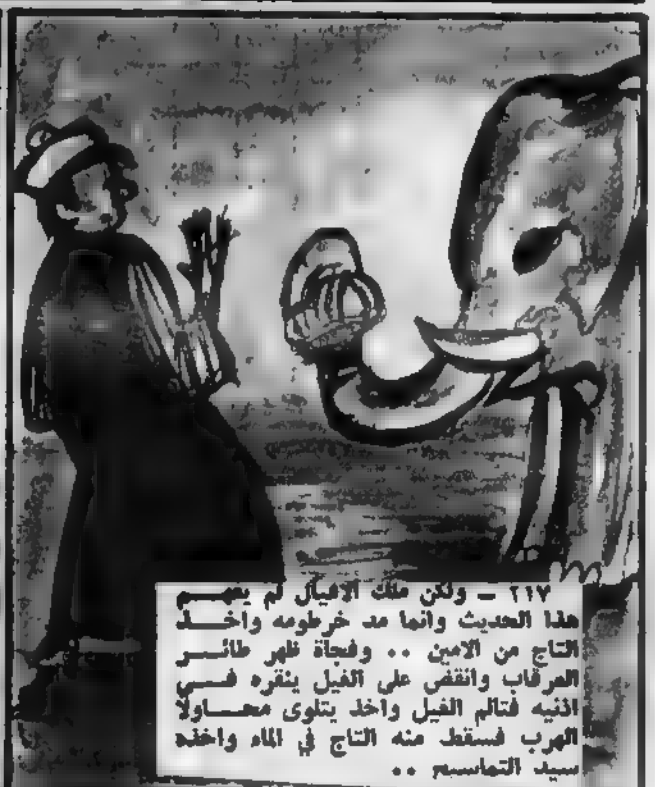 ٢١٧ – ولكن ملك الافيال لم يفهم
هذا الحديث وانما مد خرطومه واخذ
التاج من الامين .. وفجأة ظهر طائر
المرقاب وانقض على الفيل ينقره في
اذنيه فتالم الفيل واخذ يتلوى محاولا
الهرب فسقط منه التاج في الماء واخذه
سيد التماسيح ..